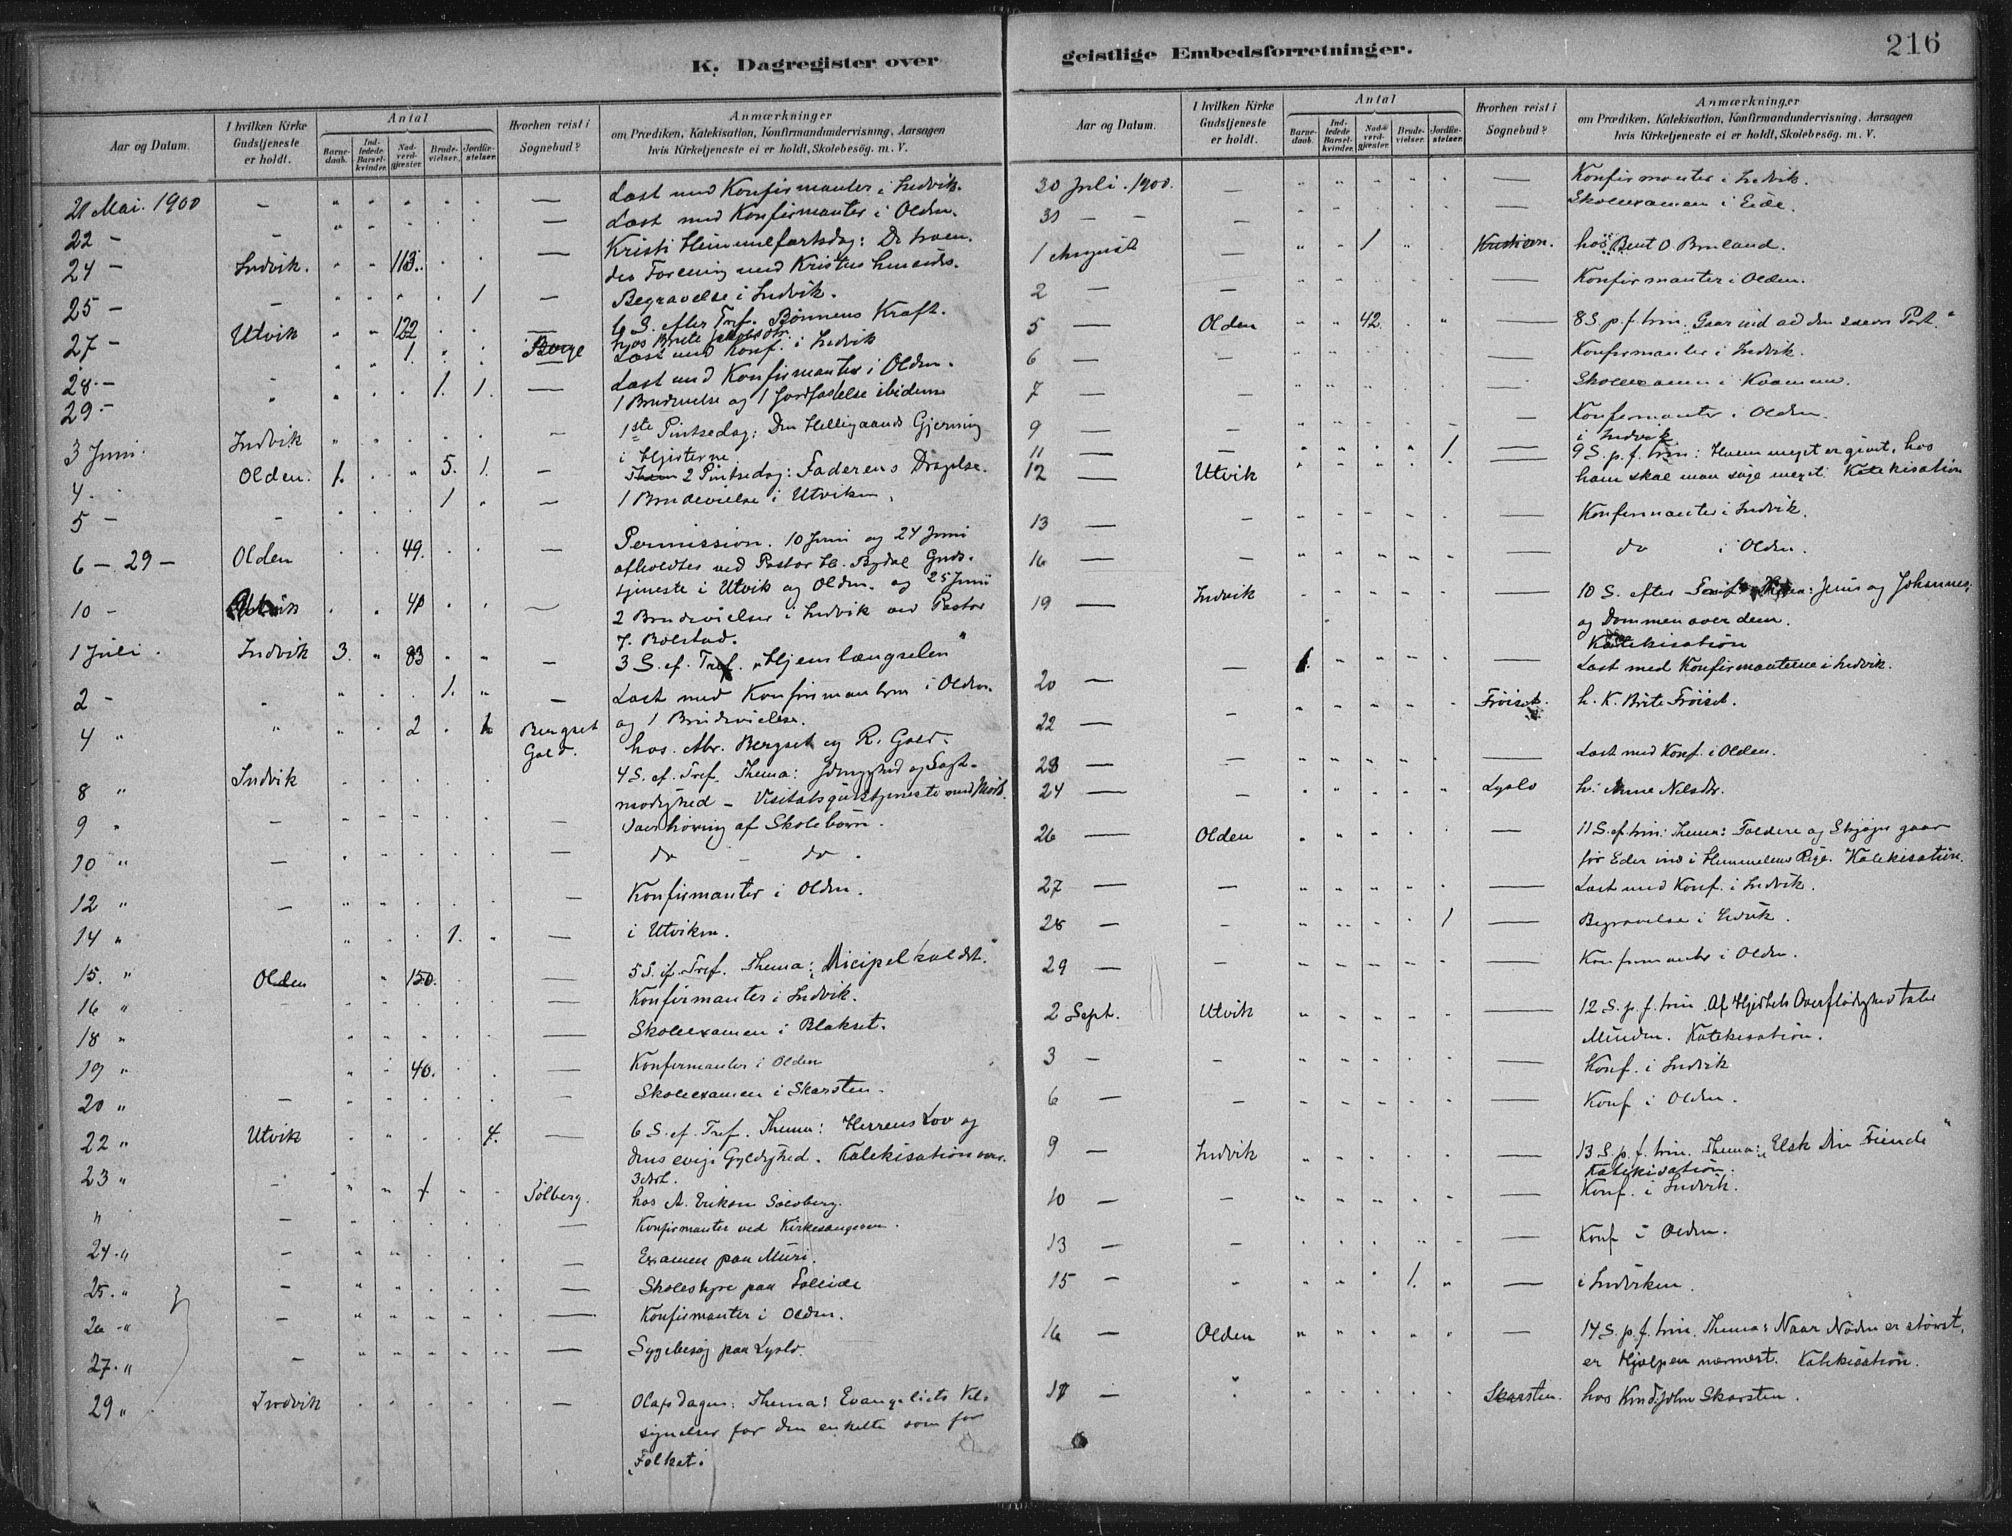 216
K. Dagregister over geistlige Embedsforretninger.
Aar og Datum. I hvilken Kirke Gudstjeneste er holdt. Antal Barnedaab. Indledede Barselkvinder. Nadverdgjæster. Brudevielser. Jordfæstelser. Hvorhen reist i Sognebud? Anmærkninger om Prædiken, Katekisation, Konfirmandundervisning, Aarsagen hvis Kirketjeneste ei er holdt, Skolebesøg. m. V.
21 Mai. 1900 — Læst med Konfirmanter i Indvik.
22 — Læst med Konfirmanter i Olden.
24 — Indvik. 113. — Kristi Himmelfartsdag: De troen-
des Forening med Kristus
25 — 1 — Begravelse i Indvik.
27 — Utvik 122 — 6 S. efter Tref. Bønnens Kraft.
1 Berge hjos Brite
28 — Læst med Konf. i Indvik
29 — 1. 1. — Læst med Konfirmanter i Olden.
1 Brudevielse og 1 Jordfæstelse ibidem
3 Juni. Indvik — 1ste Pintsedag: Den Helligaands Gjerning
i Hjerterne.
4. Olden. 1. 5. 1. — 2 Pintsedag: Faderens Dragelse.
5 — 1 — 1 Brudevielse i Utviken.
6 — 29 — Olden 49. — Permission. 10 Juni og 24 Juni
afholdtes ved Pastor H. Bydal Guds-
tjeneste i Utvik og Olden. og 25 Juni
10 — 2 Brudevielser i Indvik ved Pastor
J. Bolstad.
1 Juli. Indvik 3. 83 — 3 S. ef. Tref. "Hjemlængselen"
2 — 1. — Læst med Konfirmanterne i Olden.
og 1 Brudevielse.
4 " 2 Bergset hos Abr. Bergset og R. Gald.
Gald.
8 " Indvik 4 S. ef. Tref. Thema: Ydmyghed og Sagt-
modighed — Visitatsgudstjeneste med
9 " — Overhøring af Skolebørn.
10 " — do — do.
12 " — Konfirmanter i Olden.
14 " 1. — i Utviken.
15. " Olden 150. — 5 S. ef. Tref. Thema: Dicipelkaldet."
16 " — Konfirmanter i Indvik.
18 " — Skoleexamen i Blakset.
19 " 40. — Konfirmanter i Olden
20 " — Skoleexamen i Skarsten.
22 " Utvik 4. — 6 S. ef. Tref. Thema: Herrens Lov og
dens evige Gyldighed. Katekisation over
3 Art.
23 " 1 Solberg. hos A. Eriksen Solberg.
" — Konfirmanter ved Kirkesangeren.
24. " — Examen paa Muri.
25. " — Skolestyre paa Solleide
26 " — Konfirmanter i Olden.
27. " — Sygebesøg paa Lyslo.
29 " Indvik — Olafsdagen: Thema: Evangeliets Vel-
signelser for den enkelte som for
Folket.
Aar og Datum. I hvilken Kirke Gudstjeneste er holdt. Antal Barnedaab. Indledede Barselkvinder. Nadverdgjæster. Brudevielser. Jordfæstelser. Hvorhen reist i Sognebud? Anmærkninger om Prædiken, Katekisation, Konfirmandundervisning, Aarsagen hvis Kirketjeneste ei er holdt, Skolebesøg. m. V.
30 Juli. 1900. — Konfirmanter i Indvik.
31 — — Skoleexamen i Eide.
1 August 1 hos Bent O. Bruland.
2 — — Konfirmanter i Olden.
5 — Olden 42. — 8 S. p. f. trin. Gaar ind ad den snevre Port."
6 — — Konfirmanter i Indvik.
7 — — Skoleexamen i Kvamme.
9 — — Konfirmanter i Olden.
11 — 1 — i Indvik
12 — Utvik — 9 S. p. f. trin: Hvem meget er givet, hos
ham skal man søge meget. Katekisation
13 — — Konfirmanter i Indvik.
16 — — do i Olden.
19 — Indvik — 10 S. efter Jesus og Johannes,
og Dommen over dem.
Katekisation
20 — 1. — Læst med Konfirmanterne i Indvik.
22 — Frøiset. h. K. Brite Frøiset.
23 — — Læst med Konf. i Olden.
24 — Lyslo h. Anne Nilsdtr.
26 — Olden — 11 S. ef. trin: Thema: Toldere og Skjøger gaar
før Eder ind i Himmelens Rige. Katekisation.
27 — — Læst med Konf. i Indvik.
28 — 1 — Begravelse i Indvik.
29 — — Konfirmanter i Olden.
2 Sept. Utvik — 12 S. p. f. trin. Af Hjertets Overflødighed taler
Munden. Katekisation.
3 — — Konf. i Indvik
6 — — Konf i Olden.
9 — Indvik — 13 S. p. f. trin. Thema: "Elsk Din Fiende"
Katekisation.
10 — — Konf. i Indvik.
13 — — Konf i Olden.
15 — 1. — i Indviken.
16 — Olden — 14 S. p. f. trin. Thema: Naar Nøden er størst,
er Hjælpen nærmest. Katekisation.
17 — Skarsten. hos Knd. John Skarsten.